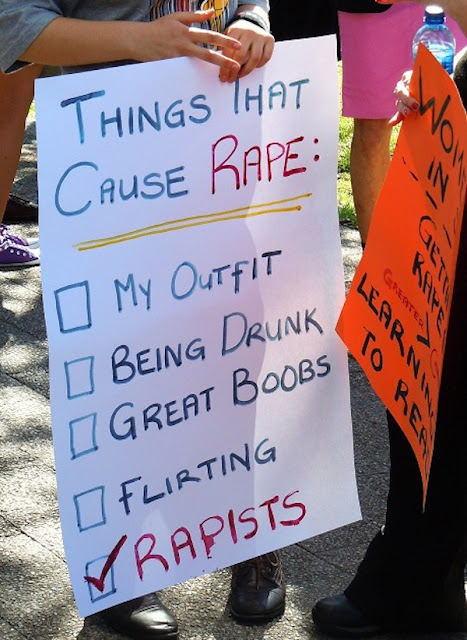 THINGS THAT
CAUSE RAPE:
MY OUTFIT
BEING DRUNK
GREAT BOOBS
FLIRTING
RAPISTS
IN
RAPE
GREATER
LEARNING
TO